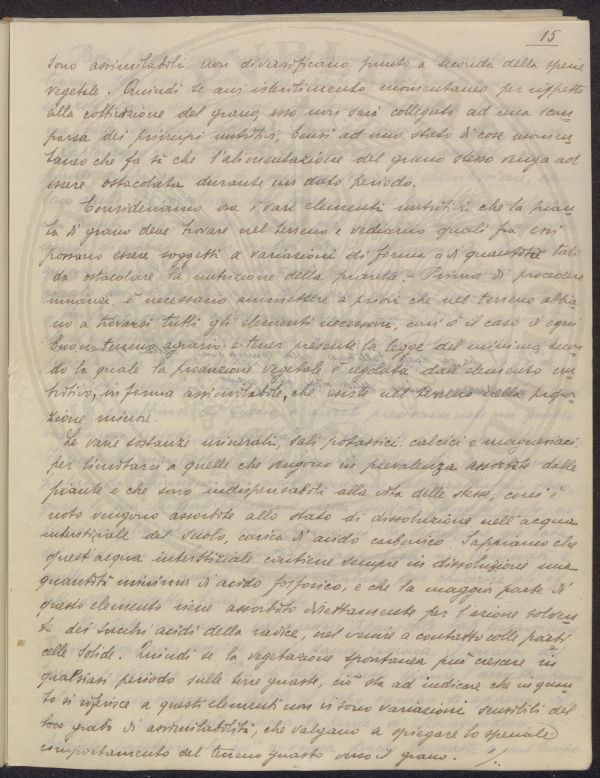 15
sono assimilabili non diversificano punto a seconda della specie
vegetale. Quindi se avvi isterilimento momentaneo per rispetto
alla coltivazione del grano, esso non sarà collegato ad una scom-
parsa dei principi nutritivi, bensì ad uno stato di cose momen-
taneo che fa sì che l'alimentazione del grano stesso venga ad
essere ostacolata durante un dato periodo.
Consideriamo ora i vari elementi nutritivi che la pian-
ta di grano deve trovare nel terreno e vediamo quali fra essi
possano essere soggetti a variazioni di forma o di quantità tali
da ostacolare la nutrizione della pianta. - Prima di procedere
innanzi, è necessario ammettere a priori che nel terreno abbia-
no a trovarsi tutti gli elementi necessari, com'è il caso di ogni
buon terreno agrario e tener presente la legge del minimo, secon-
do la quale la produzione vegetale è regolata dall'elemento nu-
tritivo, in forma assimilabile, che esiste nel terreno nella propor-
zione minore.
Le varie sostanze minerali, sali potassici calcici e magnesiaci
per limitarci a quelle che vengono in prevalenza assorbite dalle
piante e che sono indispensabili alla vita delle stesse, com'è
noto vengono assorbite allo stato di dissoluzione nell'acqua
interstiziale del suolo, carica di acido carbonico. Sappiamo che
quest'acqua interstiziale contiene sempre in dissoluzione una
quantità minima di acido fosforico, e che la maggior parte di
questo elemento viene assorbito direttamente per l'azione solven-
te dei succhi acidi della radice, nel venire a contatto colle parti
celle solide. Quindi se la vegetazione spontanea può crescere in
qualsiasi periodo sulle terre guaste, ciò sta ad indicare che in quan-
to si riferisce a questi elementi non vi sono variazioni sensibili del
loro grado di assimilabilità, che valgano a spiegare lo speciale
comportamento del terreno guasto verso il grano. /.